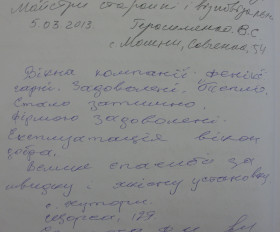 Майстри старанні і відповідальні
5.03.2013. Герасименко В.С
с Мошни, Савченка, 54
Вікна компанії фенікс
гарні. Задоволені. Тепло,
Стало затишно.
Фірмою задоволені.
Експлуатація вікон
добра.
Велике спасибо за
швидку, якісну установку
с. хутори.